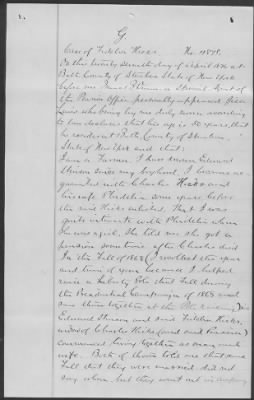 G.
Case of Hicks No 11898.
On this twenty seventh day of April 1876 at
Bath County of Steuben State of New York
before me a Special Agent of
the Pension Office personally appeared
Lewis who being by me duly sworn according
to law declares that his age is years, that
he resides at Bath County of Steuben
State of New York and that:
I am a Farmer. I have known Edward
since my boyhood, I became ac-
quainted with Charles Hicks and
his wife some years before
the said Hicks enlisted. That I was
quite intimate with when
she was a girl. She told me she got a
pension some time after Charles died
In the Fall of 1868 (I recollect the year
and time of year because I helped
raise a Liberty Pole that Fall during
the Presidential Campaign of 1868 and
saw them together at the Pole raising)
Edward and said Hicks,
widow of Charles Hicks (and said Pensioner)
commenced living together as man and
wife. Both of them told me that same
Fall that they were married did not
say when but they went out in company